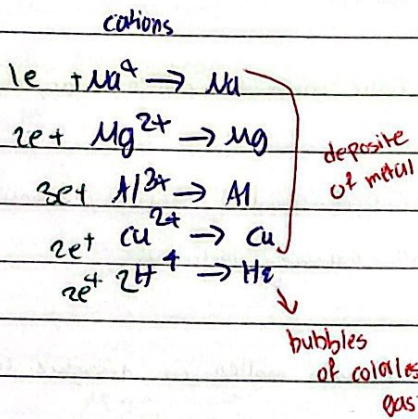 cations
1e + Na⁺ → Na
2e + Mg²⁺ → Mg
3e + Al³⁺ → Al
2e + Cu²⁺ → Cu
2e + 2H⁺ → H₂
deposite
of metal
bubbles
of colorles
gas